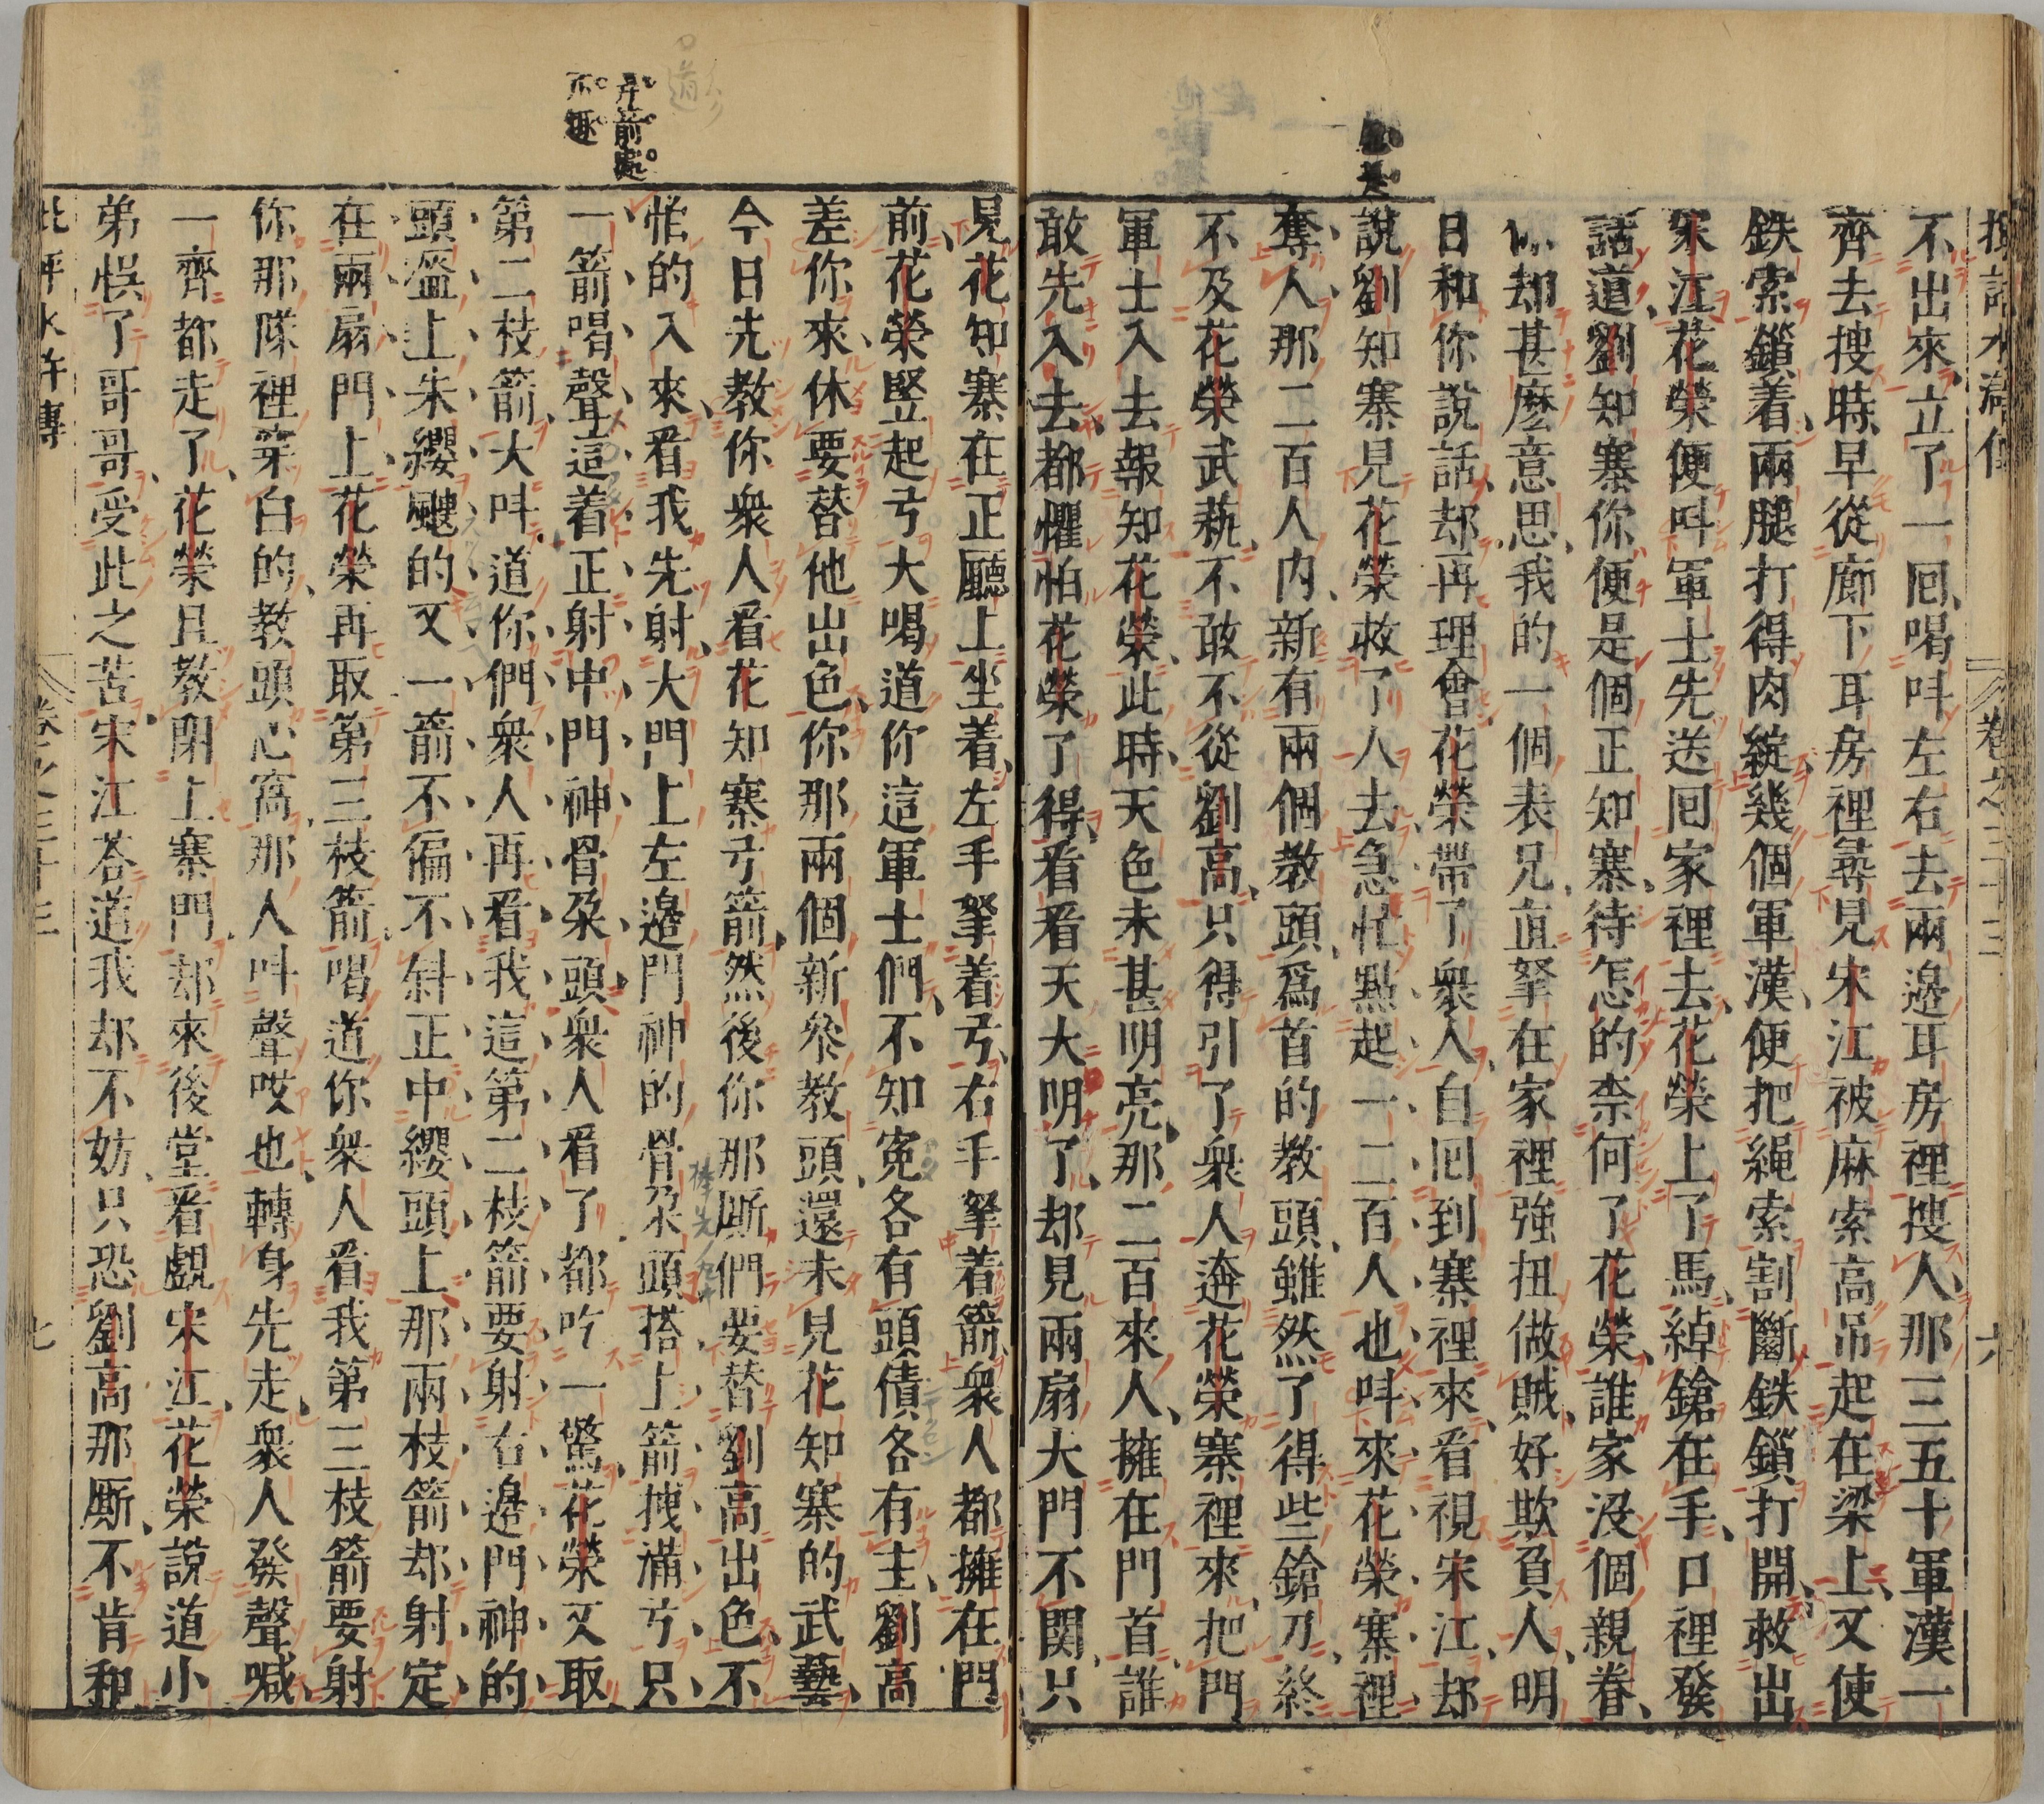 不出來立了一囘喝呌左右去兩邊耳房裡搜人那三五十軍漢一
齊去搜時早從廊下耳房裡尋見宋江被麻索高吊起在梁上又使
鉄索鎖着兩腿打得肉綻幾個軍漢便把繩索割斷鉄鎖打開救出
宋江花榮便呌軍士先送囘家裡去花榮上了馬綽鎗在手口裡發
話道劉知寨你便是個正知寨待怎的柰何了花榮誰家沒個親眷
你却甚麽意思我的一個表兄直拏在家裡强扭做賊好欺負人明
日和你說話却再理會花榮帶了衆人自囘到寨裡來看視宋江却
說劉知寨見花榮救了人去急忙點起一二百人也呌來花榮寨裡
奪人那二百人内新有兩個教頭爲首的教頭雖然了得些鎗刀終
不及花榮武藝不敢不從劉高只得引了衆人逩花榮寨裡來把門
軍士入去報知花榮此時天色未甚明亮那二百來人擁在門首誰
敢先入去都懼怕花榮了得看看天大明了却見兩扇大門不関只
見花知寨在正廳上坐着左手拏着弓右手拏着箭衆人都擁在門
前花榮竪起弓大喝道你這軍士們不知寃各有頭債各有主劉高
差你來休要替他出色你那兩個新叅教頭還未見花知寨的武藝
今日先教你衆人看花知寨弓箭然後你那厮們要替劉高出色不
怕的入來看我先射大門上左邊門神的骨朶頭搭上箭拽滿弓只
一箭喝聲這着正射中門神骨朶頭衆人看了都吃一驚花榮又取
第二枝箭大呌道你們衆人再看我這第二枝箭要射右邊門神的
頭盔上朱纓颼的又一箭不偏不斜正中纓頭上那兩枝箭却射定
在兩扇門上花榮再取第三枝箭喝道你衆人看我第三枝箭要射
你那隊裡穿白的教頭心窩那人呌聲哎也轉身先走衆人發聲喊
一齊都走了花榮且教閉上寨門却來後堂看覷宋江花榮說道小
弟悞了哥哥受此之苦宋江荅道我却不妨只恐劉高那厮不肯和
卷之三十三
六
七